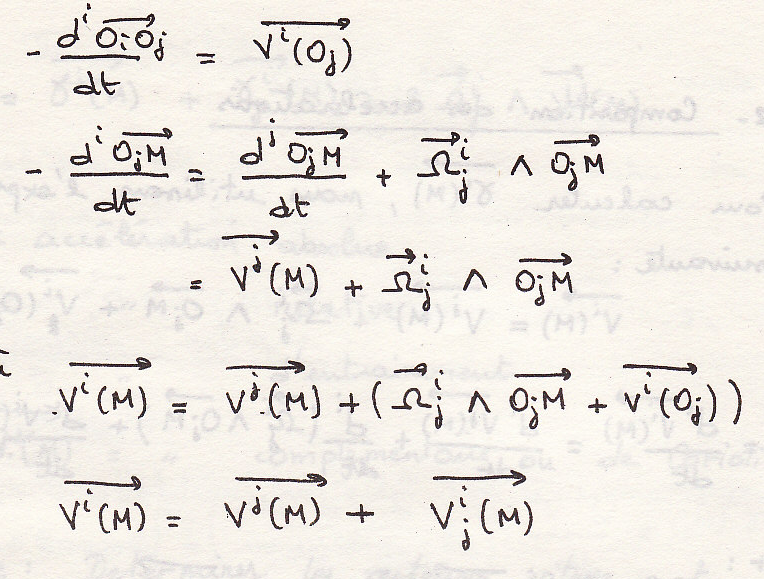 - d^i O_iO_j→ / dt = V^i(O_j)→
- d^i O_jM→ / dt = d^j O_jM→ / dt + Ω_j^i→ ∧ O_jM→
= V^j(M)→ + Ω_j^i→ ∧ O_jM→
V^i(M)→ = V^j(M)→ + (Ω_j^i→ ∧ O_jM→ + V^i(O_j)→)
V^i(M)→ = V^j(M)→ + V_j^i(M)→